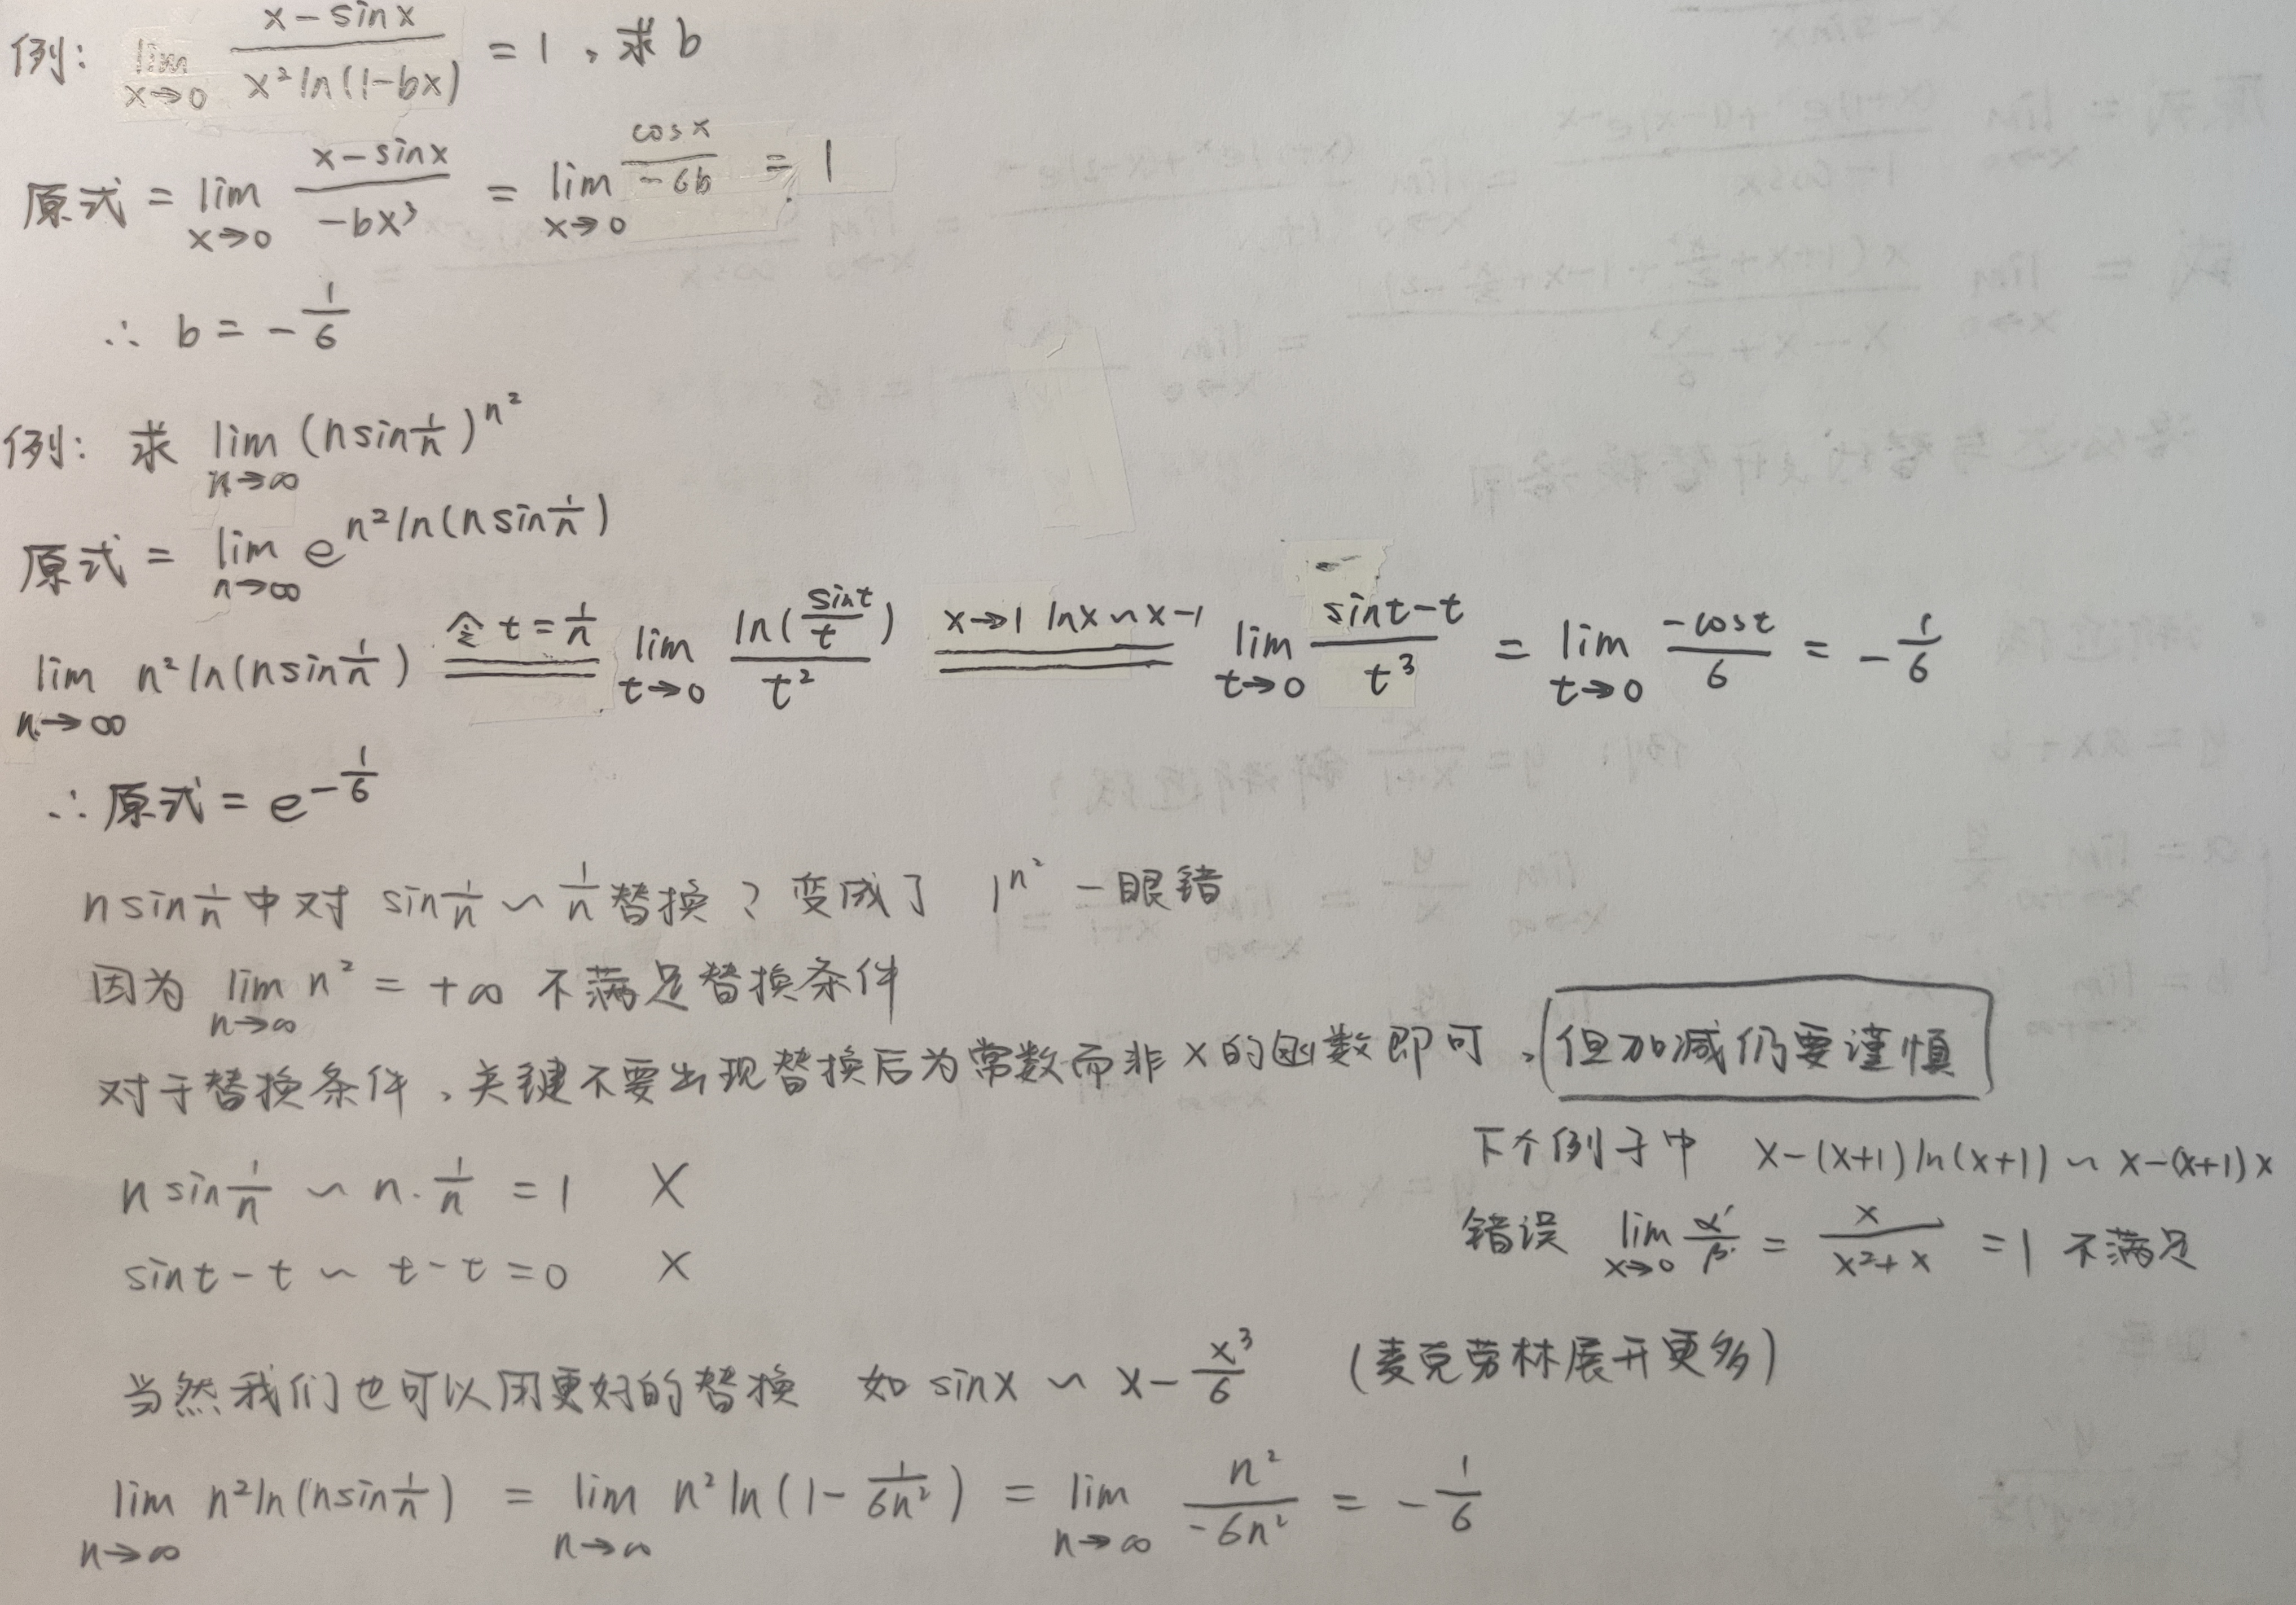 例: lim x→0 (x-sinx)/(x²ln(1-bx)) = 1, 求b
原式 = lim x→0 (x-sinx)/(-bx³) = lim x→0 cosx/(-6b) = 1
∴ b = -1/6
例: 求 lim n→∞ (nsin1/n)^n²
原式 = lim n→∞ e^(n²ln(nsin1/n))
lim n→∞ n²ln(nsin1/n) 令t=1/n == lim t→0 ln(sint/t)/t² x→1 lnx~x-1 == lim t→0 (sint-t)/t³ = lim t→0 -cost/6 = -1/6
∴原式 = e^(-1/6)
nsin1/n 中对 sin1/n ~ 1/n 替换? 变成了 1^n² 一眼错
因为 lim n→∞ n² = +∞ 不满足替换条件
对于替换条件, 关键不要出现替换后为常数而非x的函数即可, 但加减仍要谨慎
下个例子中 x-(x+1)ln(x+1) ~ x-(x+1)x
错误 lim x→0 α'/β' = x/(x²+x) = 1 不满足
nsin1/n ~ n·1/n = 1 X
sint-t ~ t-t = 0 X
当然我们也可以用更好的替换 如 sinx ~ x-x³/6 (麦克劳林展开更多)
lim n→∞ n²ln(nsin1/n) = lim n→∞ n²ln(1-1/6n²) = lim n→∞ n²/(-6n²) = -1/6